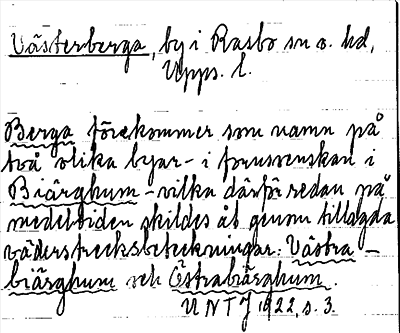 Västerberga, by i Rasbo sn o. hd,
Upps. l.
Berga förekommer som namn på
två olika byar - i fornsvenskan i
Biärghum - vilka därför redan på
medeltiden skildes åt genom tillagda
väderstrecksbeteckningar: Västra -
biärghum och Östrabiärghum.
UNT 1922, s. 3.